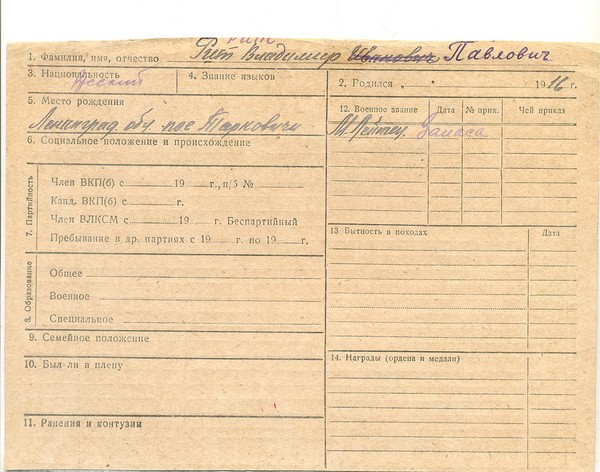 1. Фамилия, имя, отчество Рит Владимир Иванович Павлович
3. Национальность русский
4. Знание языков
2. Родился „ “ 1916 г.
5. Место рождения
Ленинград обл. пос Тарковичи
6. Социальное положение и происхождение
7. Партийность
Член ВКП(б) с 19 г., п/б №
Канд. ВКП(б) с г.
Член ВЛКСМ с 19 г. Беспартийный
Пребывание в др. партиях с 19 г. по 19 г.
8. Образование
Общее
Военное
Специальное
9. Семейное положение
10. Был-ли в плену
11. Ранения и контузии
12. Военное звание Дата № прик. Чей приказ
М. Лейтен. Запаса
13. Бытность в походах Дата
14. Награды (ордена и медали)